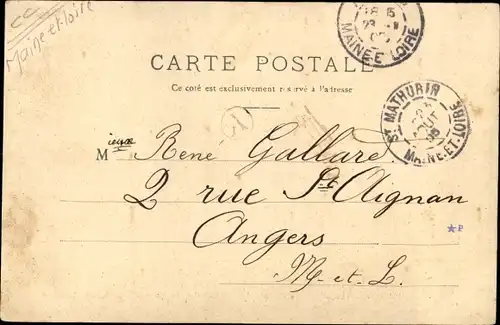 Maine-et-loire
18 15
23
MAINE-ET-LOIRE
CARTE POSTALE
Ce côté est exclusivement réservé à l'adresse
ST MATHURIN
AOUT
MAINE-ET-LOIRE
Mieux René Gallard
2 rue St Aignan
Angers
M-et-L.